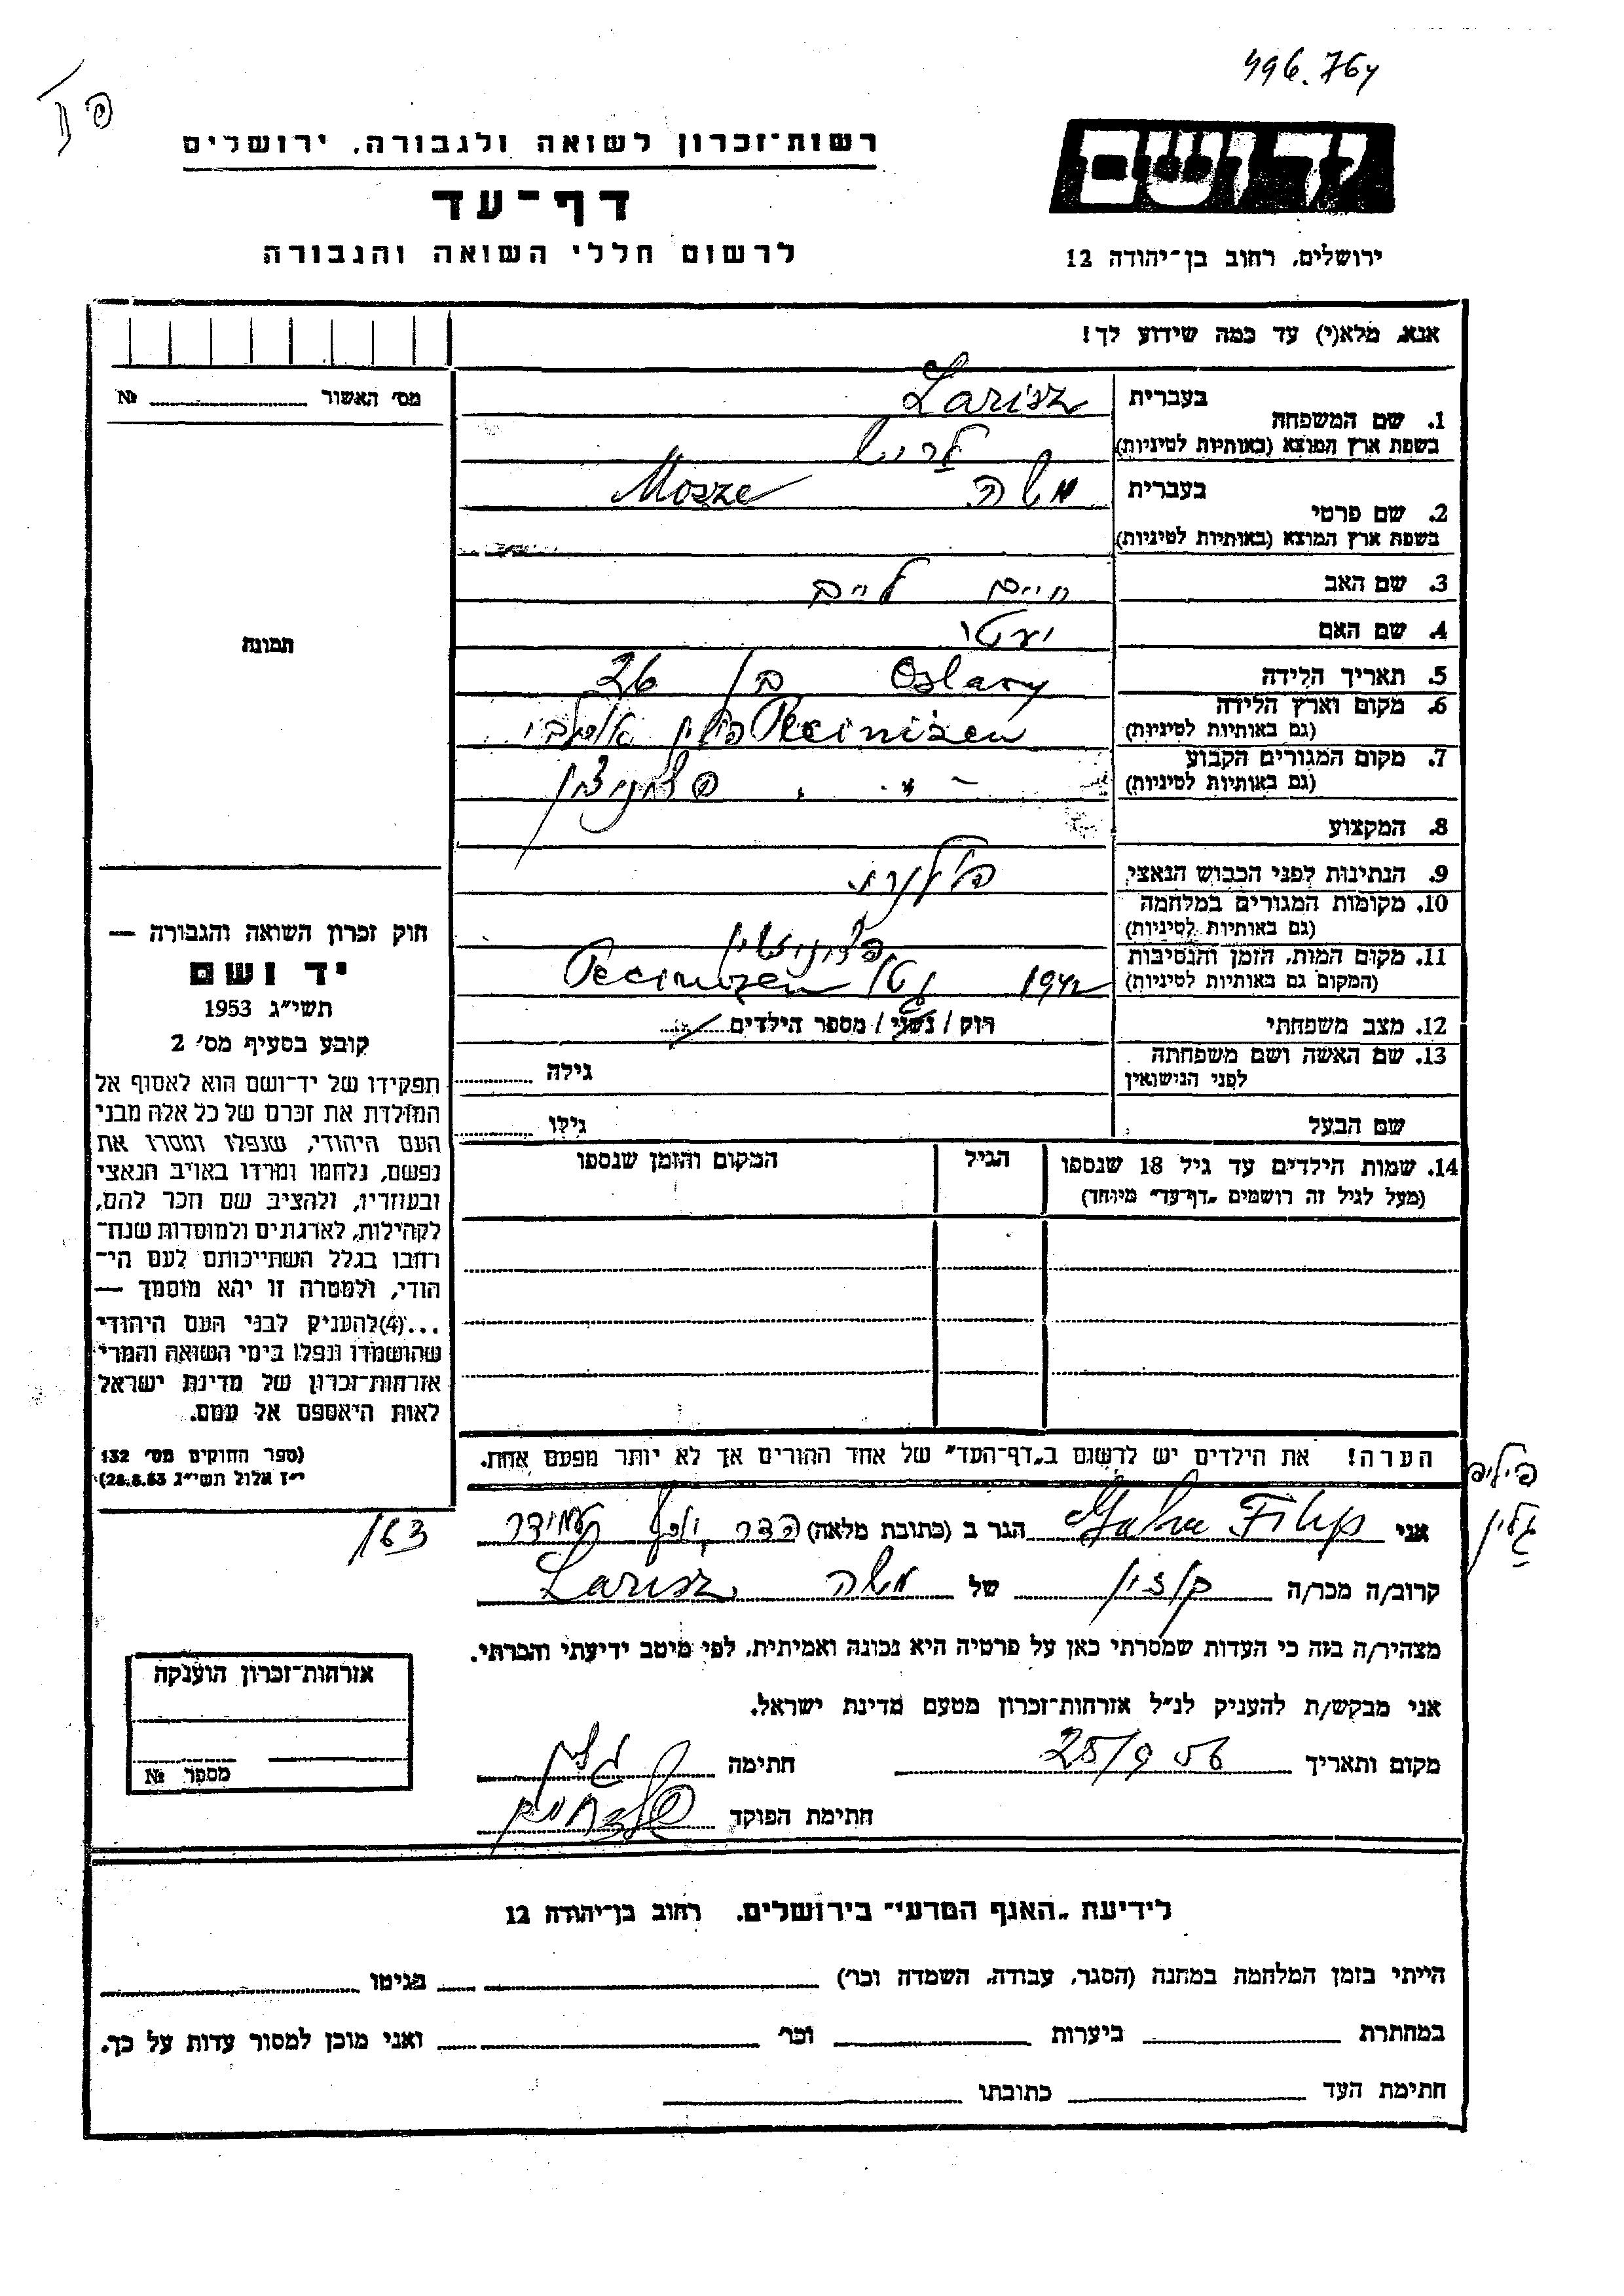 496.764
רשות־זכרון לשואה ולגבורה. ירושלים
יד ושם
דף־עד
לרשום חללי השואה והגבורה
ירושלים. רחוב בן־יהודה 12
אנא. מלא(י) עד כמה שידוע לך!
מס׳ האשור № 
1. שם המשפחה
בעברית Larisz
בשפת ארץ המוצא (באותיות לטיניות) לריש
2. שם פרטי
בעברית משה Mosze
בשפת ארץ המוצא (באותיות לטיניות)
תמונה
3. שם האב חיים
4. שם האם יעטי
5. תאריך הלידה בן 26 Oslavy
6. מקום וארץ הלידה (גם באותיות לטיניות) Peciniżen פולין
7. מקום המגורים הקבוע (גם באותיות לטיניות) - " -
8. המקצוע
9. הנתינות לפני הכבוש הנאצי פולנית
10. מקומות המגורים במלחמה (גם באותיות לטיניות)
11. מקום המות. הזמן והנסיבות (המקום גם באותיות לטיניות) 1942 Peciniżen
12. מצב משפחתי רוק / נשוי / מספר הילדים
13. שם האשה ושם משפחתה לפני הנישואין גילה
שם הבעל גילו
14. שמות הילדים עד גיל 18 שנספו (מעל לגיל זה רושמים „דף־עד״ מיוחד)
הגיל
המקום והזמן שנספו
חוק זכרון השואה והגבורה —
יד ושם
תשי״ג 1953
קובע בסעיף מס׳ 2
תפקידו של יד־ושם הוא לאסוף אל
המולדת את זכרם של כל אלה מבני
העם היהודי, שנפלו ומסרו את
נפשם, נלחמו ומרדו באויב הנאצי
ובעוזריו, ולהציב שם וזכר להם,
לקהילות, לארגונים ולמוסדות שנח־
רבו בגלל השתייכותם לעם הי־
הודי, ולמטרה זו יהא מוסמך —
...(4)להעניק לבני העם היהודי
שהושמדו ונפלו בימי השואה והמרי
אזרחות־זכרון של מדינת ישראל
לאות היאספם אל עמם.
(ספר החוקים מס׳ 132
י״ז אלול תשי״ג 28.8.53)
הערה! את הילדים יש לרשום ב„דף־העד״ של אחד ההורים אך לא יותר מפעם אחת.
פיליפ
גלין
163
אני Filip הגר ב (כתובת מלאה)
קרוב/ה מכר/ה בן דוד של משה Larisz
מצהיר/ה בזה כי העדות שמסרתי כאן על פרטיה היא נכונה ואמיתית. לפי מיטב ידיעתי והכרתי.
אני מבקש/ת להעניק לנ״ל אזרחות־זכרון מטעם מדינת ישראל.
מקום ותאריך 25/9 56 חתימה
חתימת הפוקד
אזרחות־זכרון הוענקה
מספר №
לידיעת „האגף המדעי״ בירושלים. רחוב בן־יהודה 12
הייתי בזמן המלחמה במחנה (הסגר. עבודה. השמדה וכו׳) בגיטו
במחתרת ביערות וכו׳ ואני מוכן למסור עדות על כך.
חתימת העד כתובתו